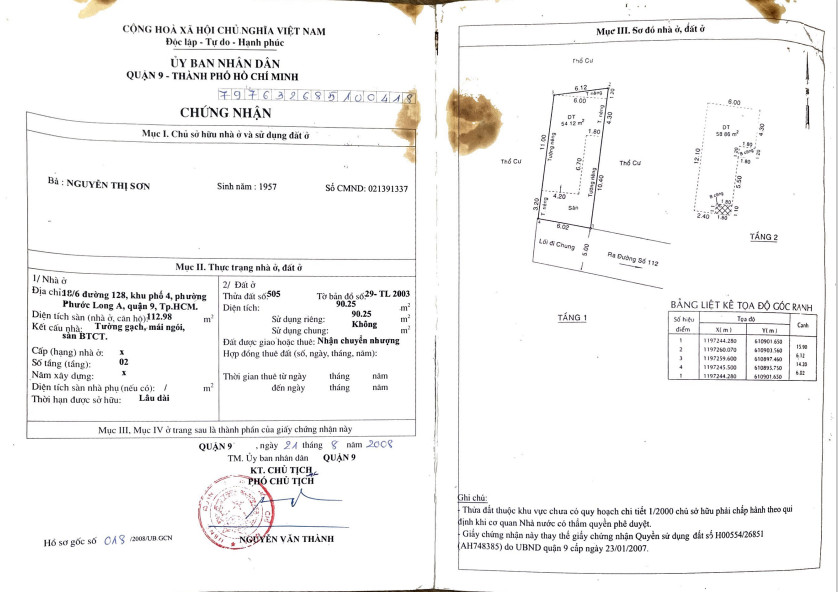 CỘNG HOÀ XÃ HỘI CHỦ NGHĨA VIỆT NAM
Độc lập - Tự do - Hạnh phúc
ỦY BAN NHÂN DÂN
QUẬN 9 - THÀNH PHỐ HỒ CHÍ MINH
797632685100418
CHỨNG NHẬN
Mục I. Chủ sở hữu nhà ở và sử dụng đất ở
Bà : NGUYỄN THỊ SƠN Sinh năm : 1957 Số CMND: 021391337
Mục II. Thực trạng nhà ở, đất ở
1/ Nhà ở
Địa chỉ: 18/6 đường 128, khu phố 4, phường
Phước Long A, quận 9, Tp.HCM.
Diện tích sàn (nhà ở, căn hộ) 112.98 m²
Kết cấu nhà: Tường gạch, mái ngói,
sàn BTCT.
Cấp (hạng) nhà ở: x
Số tầng (tầng): 02
Năm xây dựng: x
Diện tích sàn nhà phụ (nếu có): / m²
Thời hạn được sở hữu: Lâu dài
2/ Đất ở
Thửa đất số: 505 Tờ bản đồ số: 29- TL 2003
Diện tích: 90.25 m²
Sử dụng riêng: 90.25 m²
Sử dụng chung: Không m²
Đất được giao hoặc thuê: Nhận chuyển nhượng
Hợp đồng thuê đất (số, ngày, tháng, năm):
Thời gian thuê từ ngày tháng năm
đến ngày tháng năm
Mục III, Mục IV ở trang sau là thành phần của giấy chứng nhận này
QUẬN 9 , ngày 21 tháng 8 năm 2008
TM. Ủy ban nhân dân QUẬN 9
KT. CHỦ TỊCH
PHÓ CHỦ TỊCH
NGUYỄN VĂN THÀNH
Hồ sơ gốc số 018 /2008/UB.GCN
Mục III. Sơ đồ nhà ở, đất ở
Thổ Cư
6.12
T. riêng
6.00
1.20
DT
54.12 m²
T. riêng
4.30
1.80
11.00
Tường riêng
6.70
Thổ Cư
Thổ Cư
Tường riêng
10.40
4.20
Sân
3.20
T. riêng
6.02
Lối đi Chung
5.00
Ra Đường Số 112
TẦNG 1
6.00
DT
58.86 m²
4.30
1.80
2.20
B công
1.20
1.80
12.10
5.50
B công
1.80
2.40
1.80
1.10
TẦNG 2
BẢNG LIỆT KÊ TỌA ĐỘ GÓC RANH
Số hiệu điểm Tọa độ Cạnh
X( m ) Y( m )
1 1197244.280 610901.650
15.90
2 1197260.070 610903.560
6.12
3 1197259.600 610897.460
14.20
4 1197245.500 610895.750
6.02
1 1197244.280 610901.650
Ghi chú:
- Thửa đất thuộc khu vực chưa có quy hoạch chi tiết 1/2000 chủ sở hữu phải chấp hành theo qui
định khi cơ quan Nhà nước có thẩm quyền phê duyệt.
- Giấy chứng nhận này thay thế giấy chứng nhận Quyền sử dụng đất số H00554/26851
(AH748385) do UBND quận 9 cấp ngày 23/01/2007.